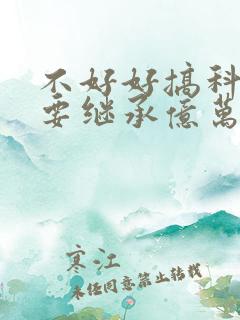 不好好搞科
要继承億萬
寒江
未经同意禁止转载